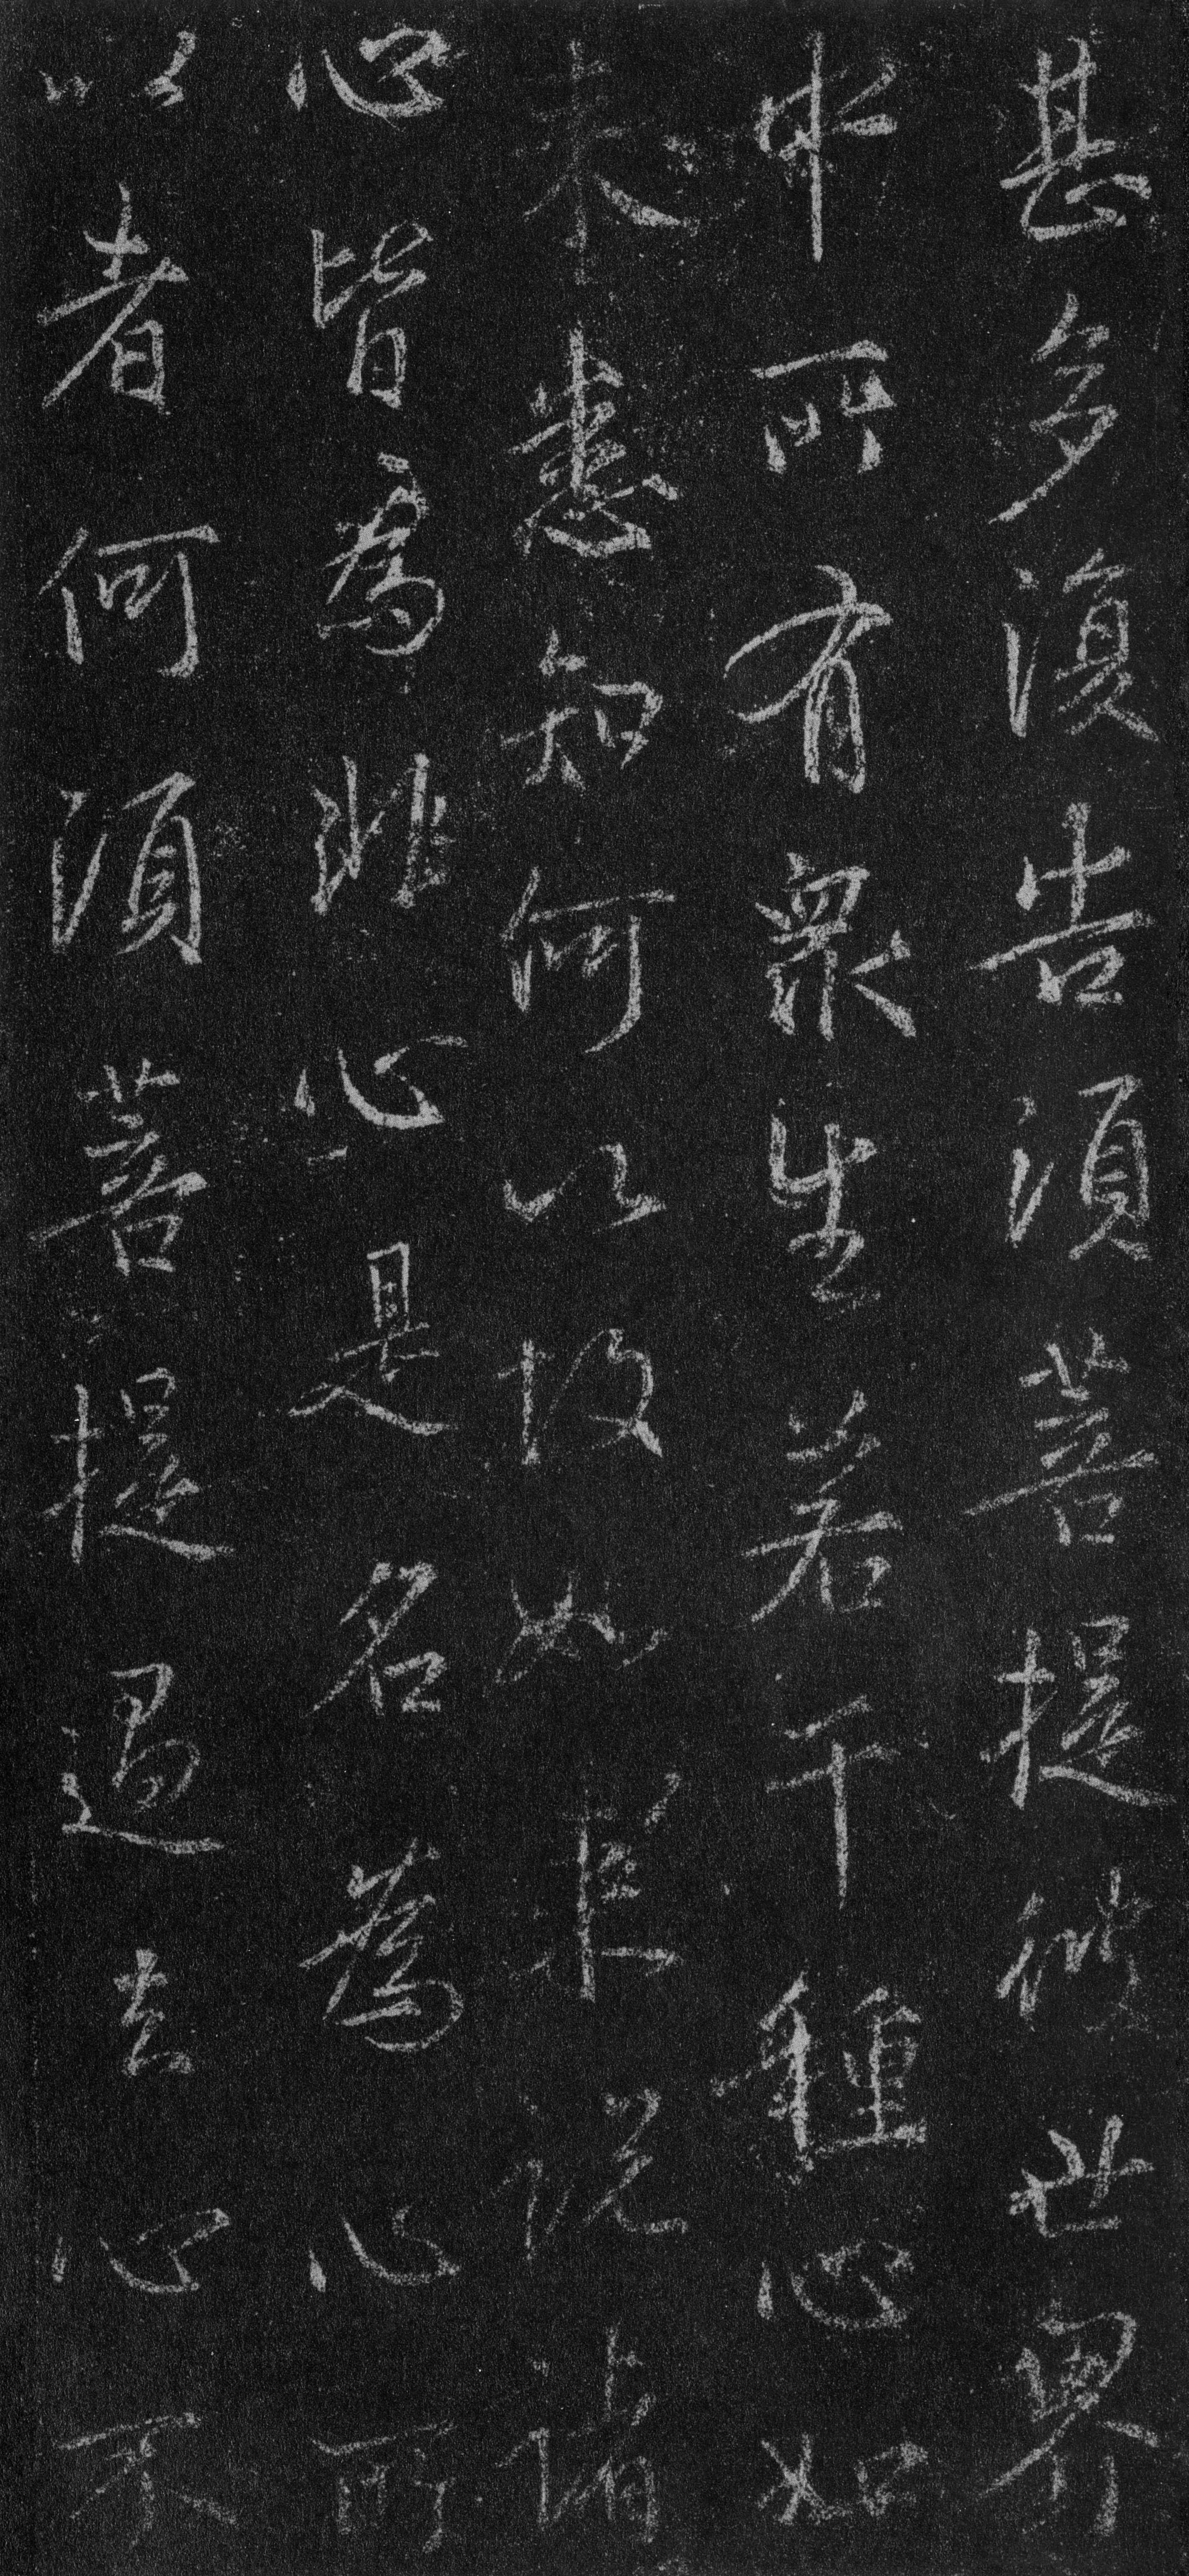 甚多復告須菩提彼世界
中所有衆生若干種心如
来悉知何以故如来說諸
心皆為非心是名為心所
以者何須菩提過去心不